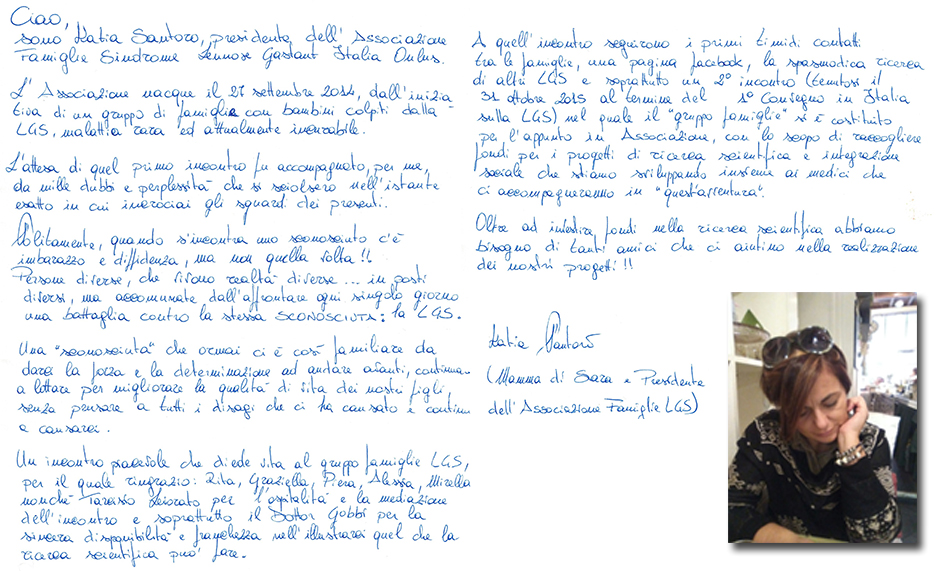 Ciao,
sono Katia Santoro, presidente dell'Associazione
Famiglie Sindrome Lennox Gastaut Italia Onlus.
L'Associazione nacque il 27 settembre 2014, dall'inizia
tiva di un gruppo di famiglie con bambini colpiti dalla
LGS, malattia rara ed attualmente incurabile.
L'attesa di quel primo incontro fu accompagnato, per me,
da mille dubbi e perplessità che si sciolsero nell'istante
esatto in cui incrociai gli sguardi dei presenti.
Solitamente, quando s'incontra uno sconosciuto c'è
imbarazzo e diffidenza, ma non quella volta!!
Persone diverse, che vivono realtà diverse ... in posti
diversi, ma accomunate dall'affrontare ogni singolo giorno
una battaglia contro la stessa SCONOSCIUTA: la LGS.
Una "sconosciuta" che ormai ci è così familiare da
darci la forza e la determinazione ad andare avanti, continua
a lottare per migliorare la qualità di vita dei nostri figli
senza pensare a tutti i disagi che ci ha causato e continu
a causarci.
Un incontro piacevole che diede vita al gruppo famiglie LGS,
per il quale ringrazio: Rita, Graziella, Piera, Alessia, Mirella
nonchè Tarcisio Levorato per l'ospitalità e la mediazione
dell'incontro e soprattutto il Dottor Gobbi per la
sincera disponibilità e franchezza nell'illustrarci quel che la
ricerca scientifica può fare.
A quell'incontro seguirono i primi timidi contatti
tra le famiglie, una pagina facebook, la spasmodica ricerca
di altri LGS e soprattutto un 2° incontro (tenutosi il
31 ottobre 2015 al termine del 1° Convegno in Italia
sulla LGS) nel quale il "gruppo famiglie" si è costituito
per l'appunto in Associazione, con lo scopo di raccogliere
fondi per i progetti di ricerca scientifica e integrazione
sociale che stiamo sviluppando insieme ai medici che
ci accompagneranno in "quest'avventura".
Oltre ad investire fondi nella ricerca scientifica abbiamo
bisogno di tanti amici che ci aiutino nella realizzazione
dei nostri progetti!!
Katia Santoro
(Mamma di Sara e Presidente
dell'Associazione Famiglie LGS)